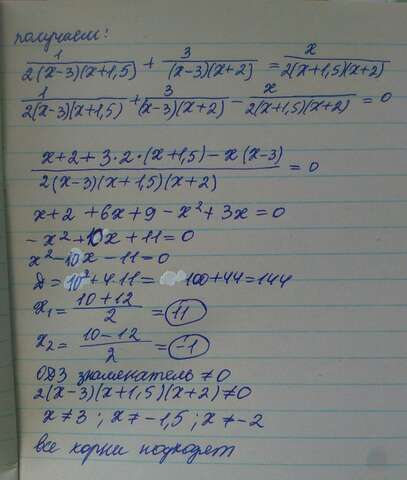 получаем:
1/2(x-3)(x+1,5) + 3/(x-3)(x+2) = x/2(x+1,5)(x+2)
1/2(x-3)(x+1,5) + 3/(x-3)(x+2) - x/2(x+1,5)(x+2) = 0
x+2+3·2·(x+1,5)-x(x-3)/2(x-3)(x+1,5)(x+2) = 0
x+2+6x+9-x²+3x=0
-x²+10x+11=0
x²-10x-11=0
D=10²+4·11=100+44=144
x₁=10+12/2=11
x₂=10-12/2=-1
ОДЗ знаменатель≠0
2(x-3)(x+1,5)(x+2)≠0
x≠3; x≠-1,5; x≠-2
все корни подходят